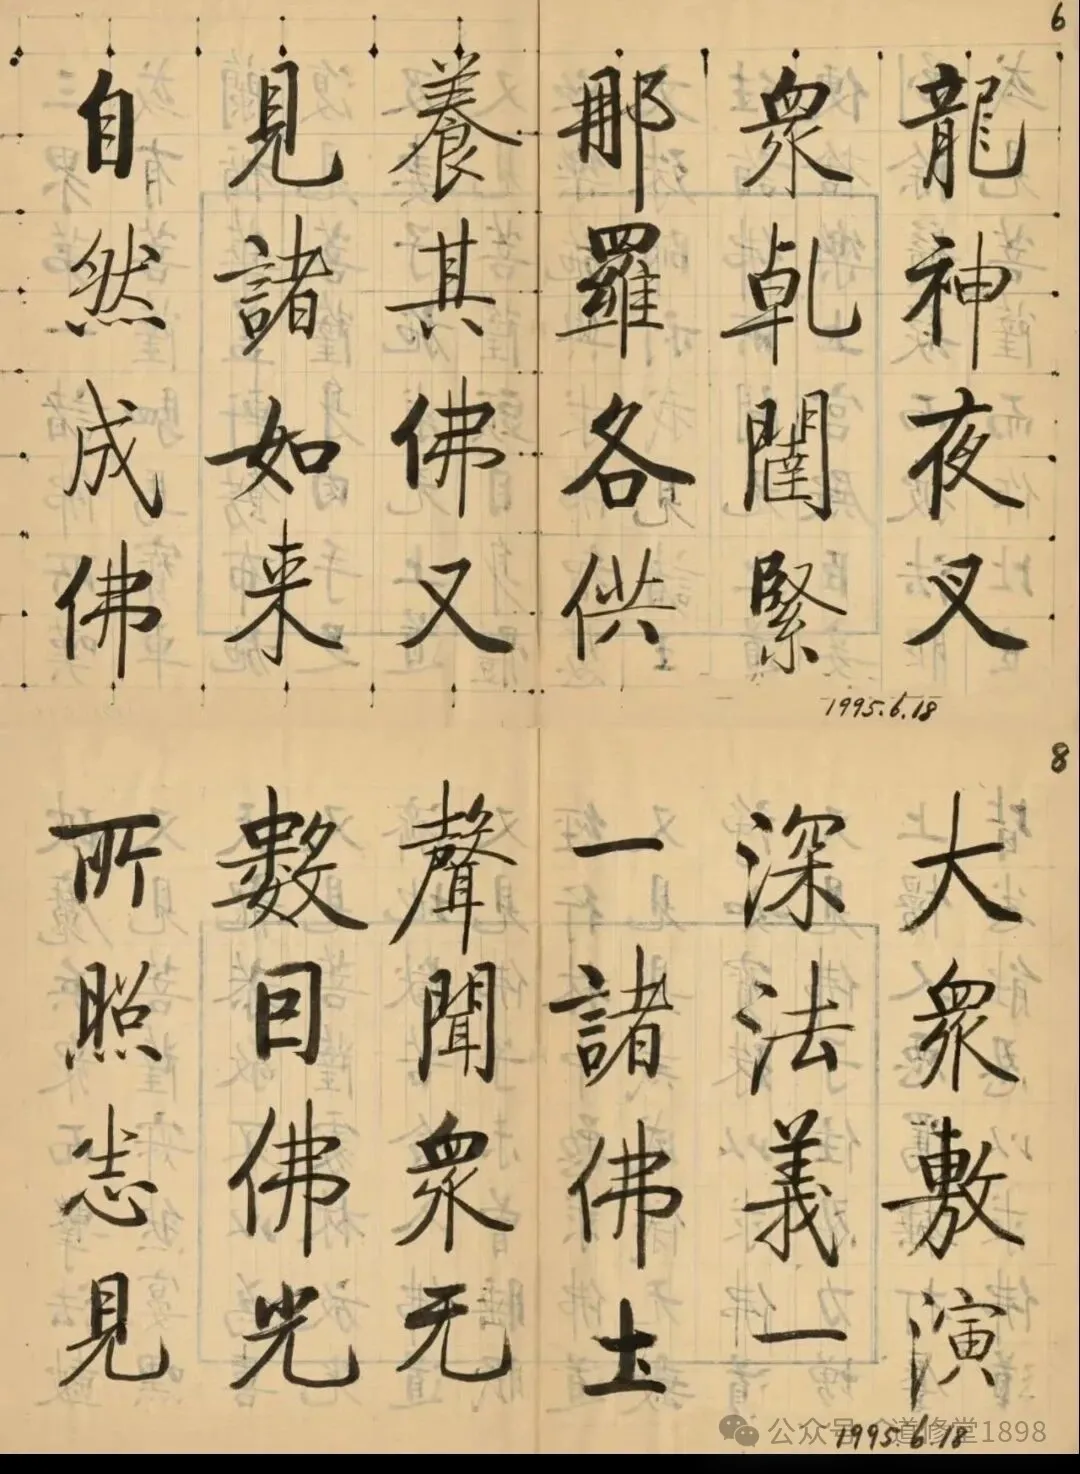 6
龍神夜叉
衆乹闥緊
那羅各供
養其佛又
見諸如来
自然成佛
1995.6.18
8
大衆敷演
深法義一
一諸佛土
聲聞衆无
數囙佛光
所照悉見
1995.6.18
公众号 道修堂1898